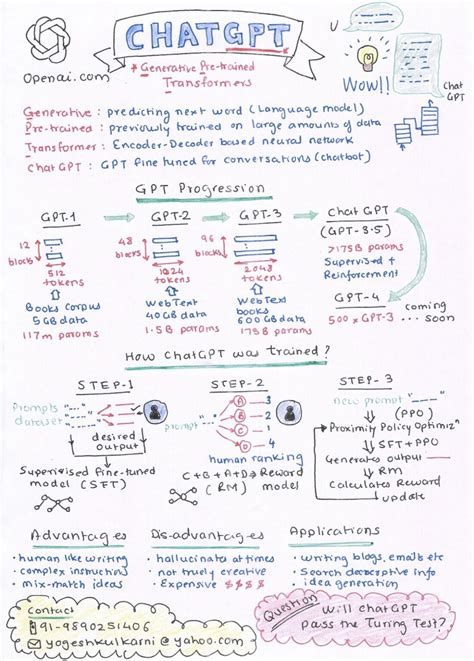 CHATGPT
Openai.com
* Generative Pre-trained
Transformers
U
Wow!!
Chat
GPT
Generative : predicting next word (Language model)
Pre-trained : previously trained on large amounts of data
Transformer : Encoder-Decoder based neural network
Chat GPT : GPT fine tuned for conversations (chatbot)
GPT Progression
GPT-1
GPT-2
GPT-3
Chat GPT
(GPT-3.5)
12
blocks
48
blocks
96
blocks
512
tokens
1024
tokens
2048
tokens
>175B params
Supervised +
Reinforcement
Books Corpus
5GB data
117m params
WebText
40GB data
1.5B params
WebText
books
600GB data
175B params
GPT-4
500 x GPT-3
coming
... soon
How ChatGPT was trained?
STEP-1
Prompts
dataset
desired
output
Supervised fine-tuned
model (SFT)
STEP-2
prompt
A 3
B 1
C 2
D 4
human ranking
C+B+A+D → Reward
(RM) model
STEP-3
new prompt
(PPO)
Proximity Policy Optimizn
SFT+PPO
Generates output
RM
Calculates Reward
update
Advantages
• human like writing
• complex instruction
• mix-match ideas
Dis-advantages
• hallucinate at times
• not truely creative
• Expensive $$$$
Applications
• writing blogs, emails etc
• Search descriptive info
• idea generation
Contact
91-9890251406
yogeshkulkarni@yahoo.com
Question
Will ChatGPT
pass the Turing Test?